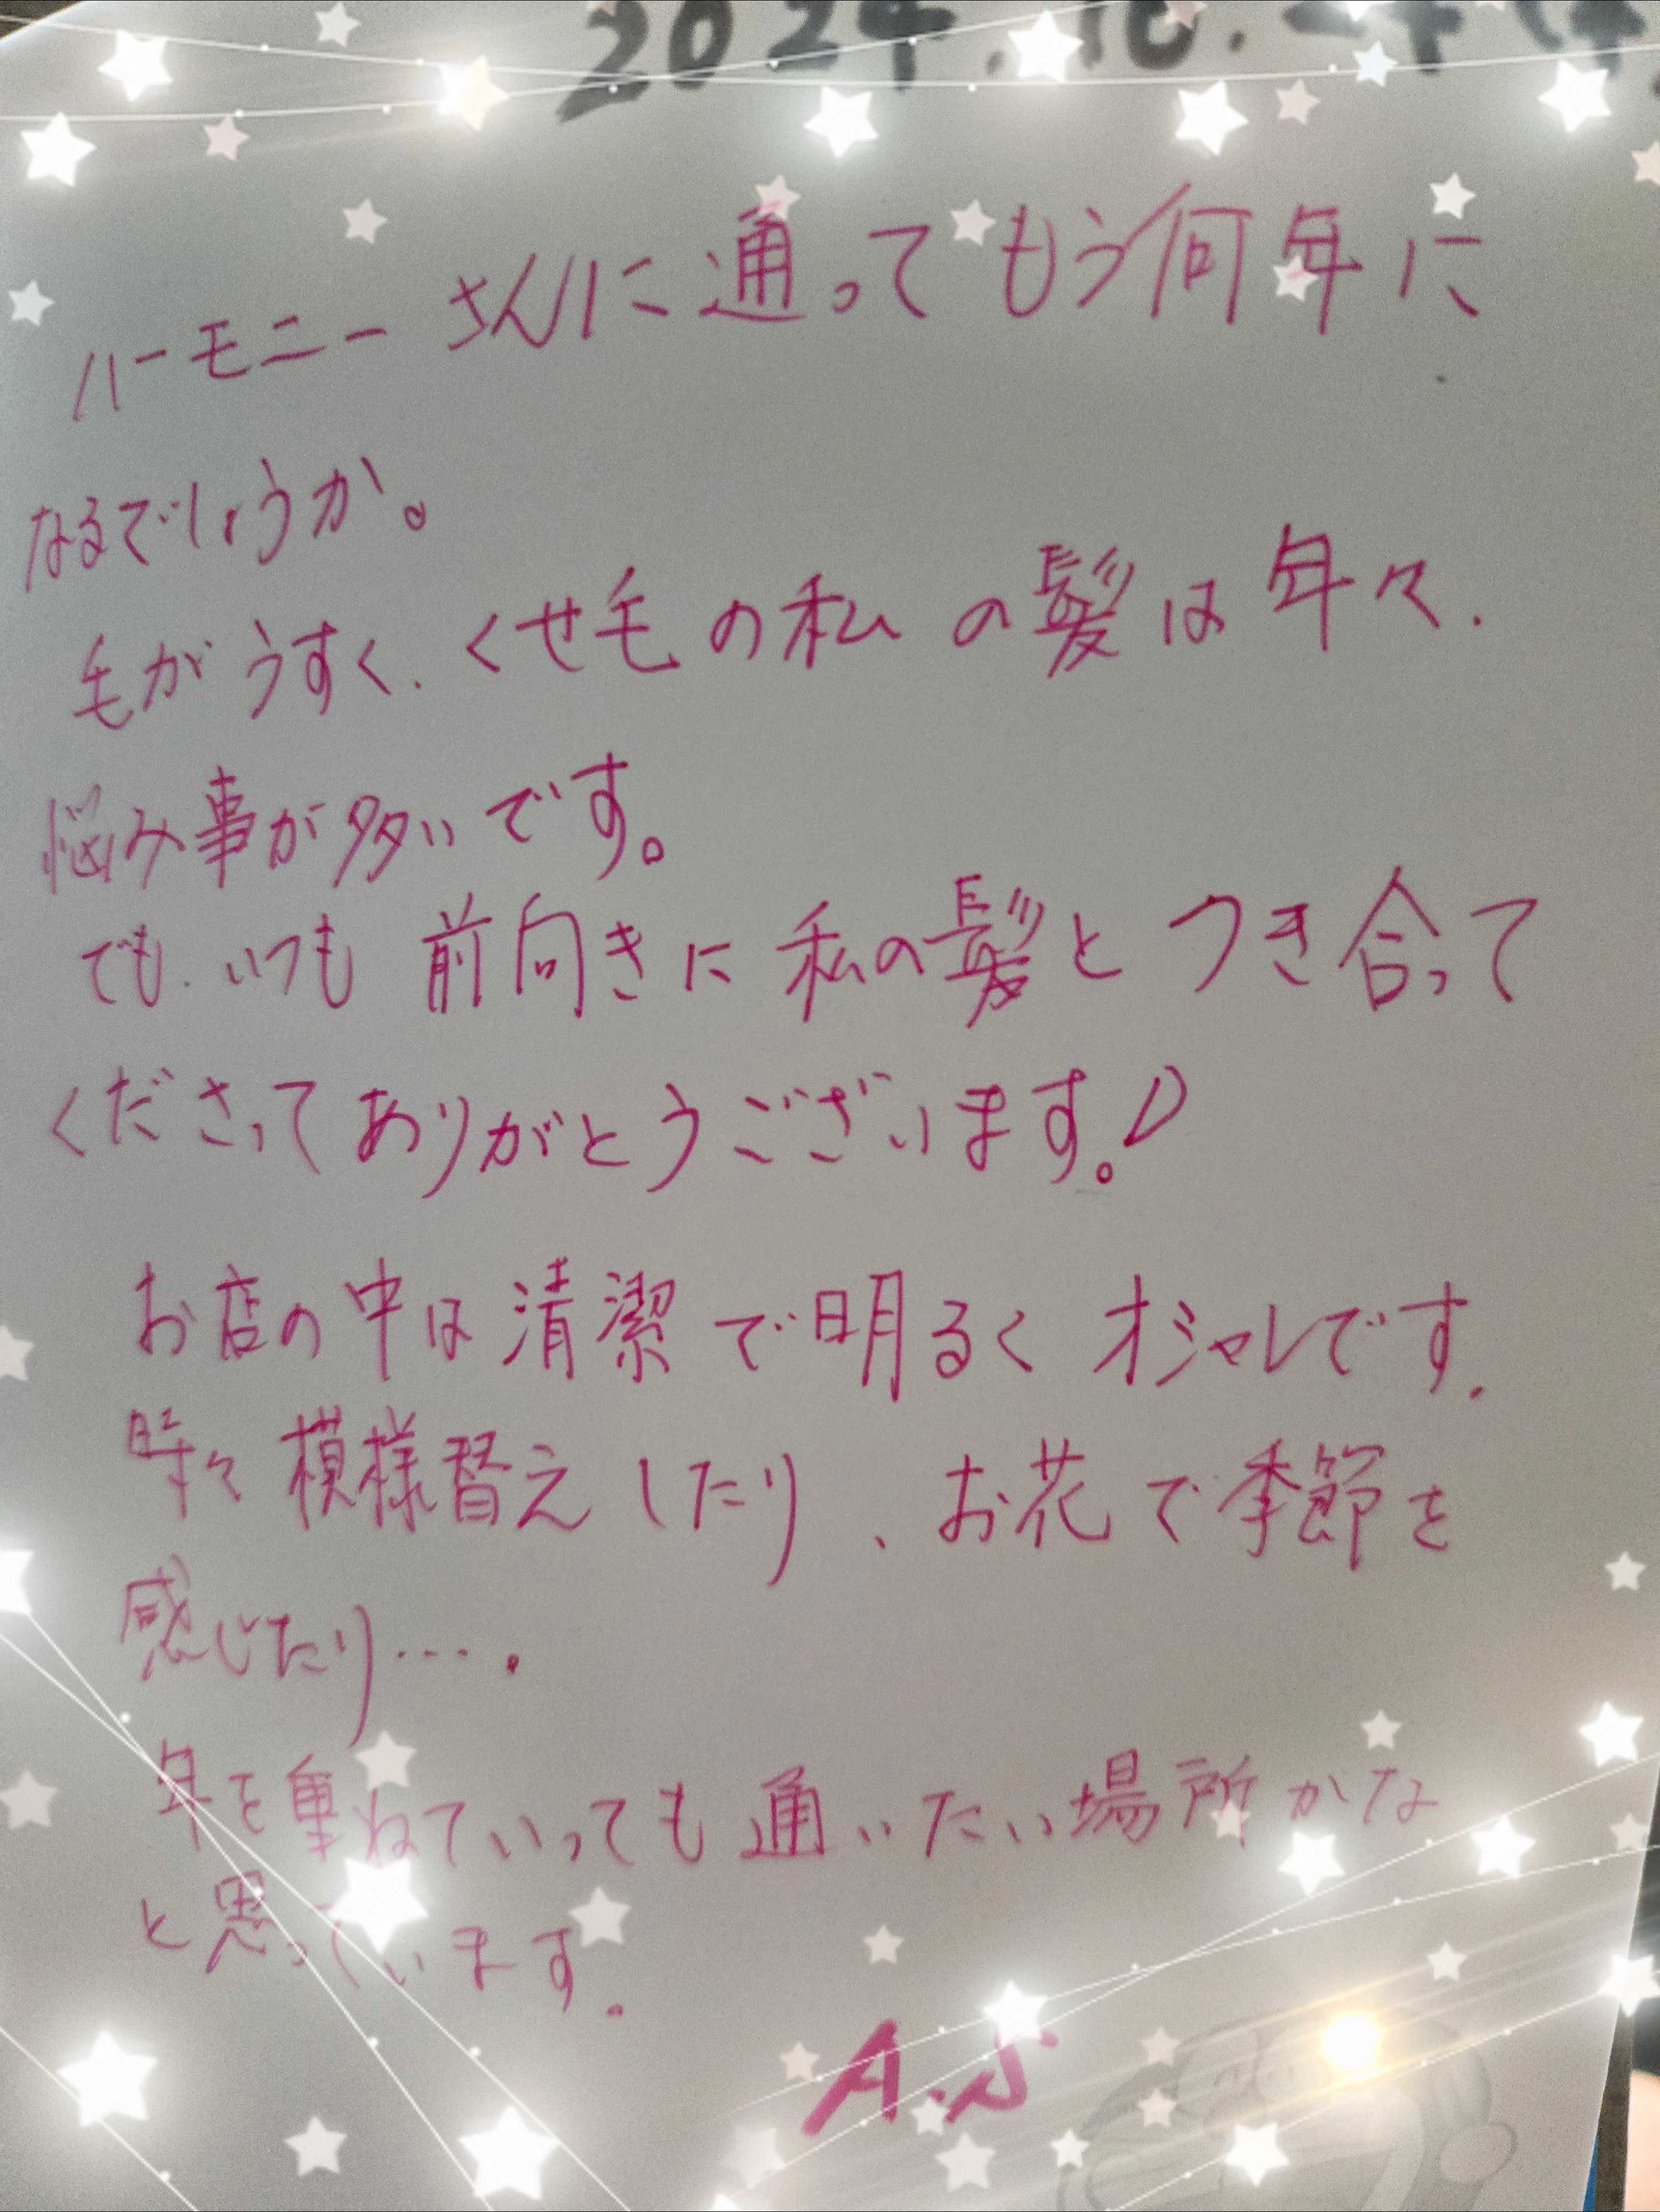 2024.10.
ハーモニーさんに通ってもう何年に
なるでしょうか。
毛がうすく、くせ毛の私の髪は年々、
悩み事が多いです。
でも、いつも前向きに私の髪とつき合って
くださってありがとうございます。
お店の中は清潔で明るくオシャレです。
時々模様替えしたり、お花で季節を
感じたり…。
年を重ねていっても通いたい場所かな
と思っています。
A.S